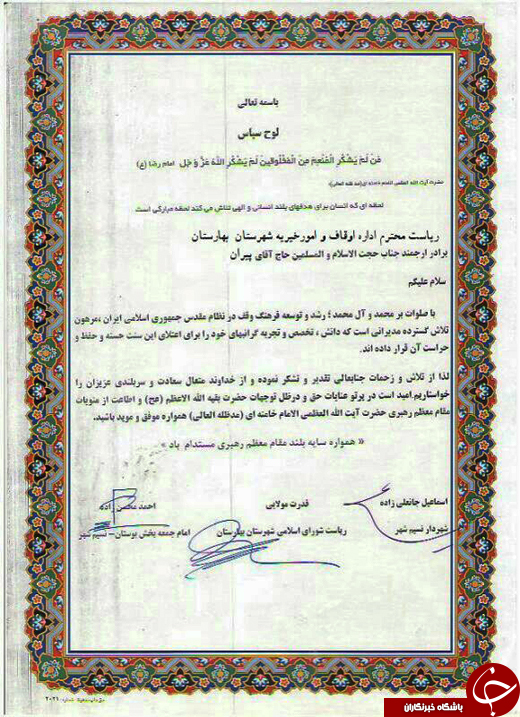 باسمه تعالی
لوح سپاس
مَن لَم یَشکُرِ المُنعِمَ مِنَ المَخلوقینَ لَم یَشکُرِ اللهَ عَزَّ وَ جَل امام رضا (ع)
حضرت آیت الله العظمی امام خامنه ای(مد ظله العالی):
لحظه ای که انسان برای هدفهای بلند انسانی و الهی تلاش می کند لحظه مبارکی است
ریاست محترم اداره اوقاف و امورخیریه شهرستان بهارستان
برادر ارجمند جناب حجت الاسلام و المسلمین حاج آقای پیران
سلام علیکم
با صلوات بر محمد و آل محمد؛ رشد و توسعه فرهنگ وقف در نظام مقدس جمهوری اسلامی ایران ،مرهون
تلاش گسترده مدیرانی است که دانش ، تخصص و تجربه گرانبهای خود را برای اعتلای این سنت حسنه و حفظ و
حراست آن قرار داده اند.
لذا از تلاش و زحمات جنابعالی تقدیر و تشکر نموده و از خداوند متعال سعادت و سربلندی عزیزان را
خواستاریم.امید است در پرتو عنایات حق و درظل توجهات حضرت بقیه الله الاعظم (عج) و اطاعت از منویات
مقام معظم رهبری حضرت آیت الله العظمی الامام خامنه ای (مدظله العالی) همواره موفق و موید باشید.
« همواره سایه بلند مقام معظم رهبری مستدام باد »
اسماعیل جانعلی زاده
قدرت مولایی
احمد محسن زاده
شهردار نسیم شهر
ریاست شورای اسلامی شهرستان بهارستان
امام جمعه بخش بوستان– نسیم شهر
شماره: ۲۰۲۱
باشگاه خبرنگاران